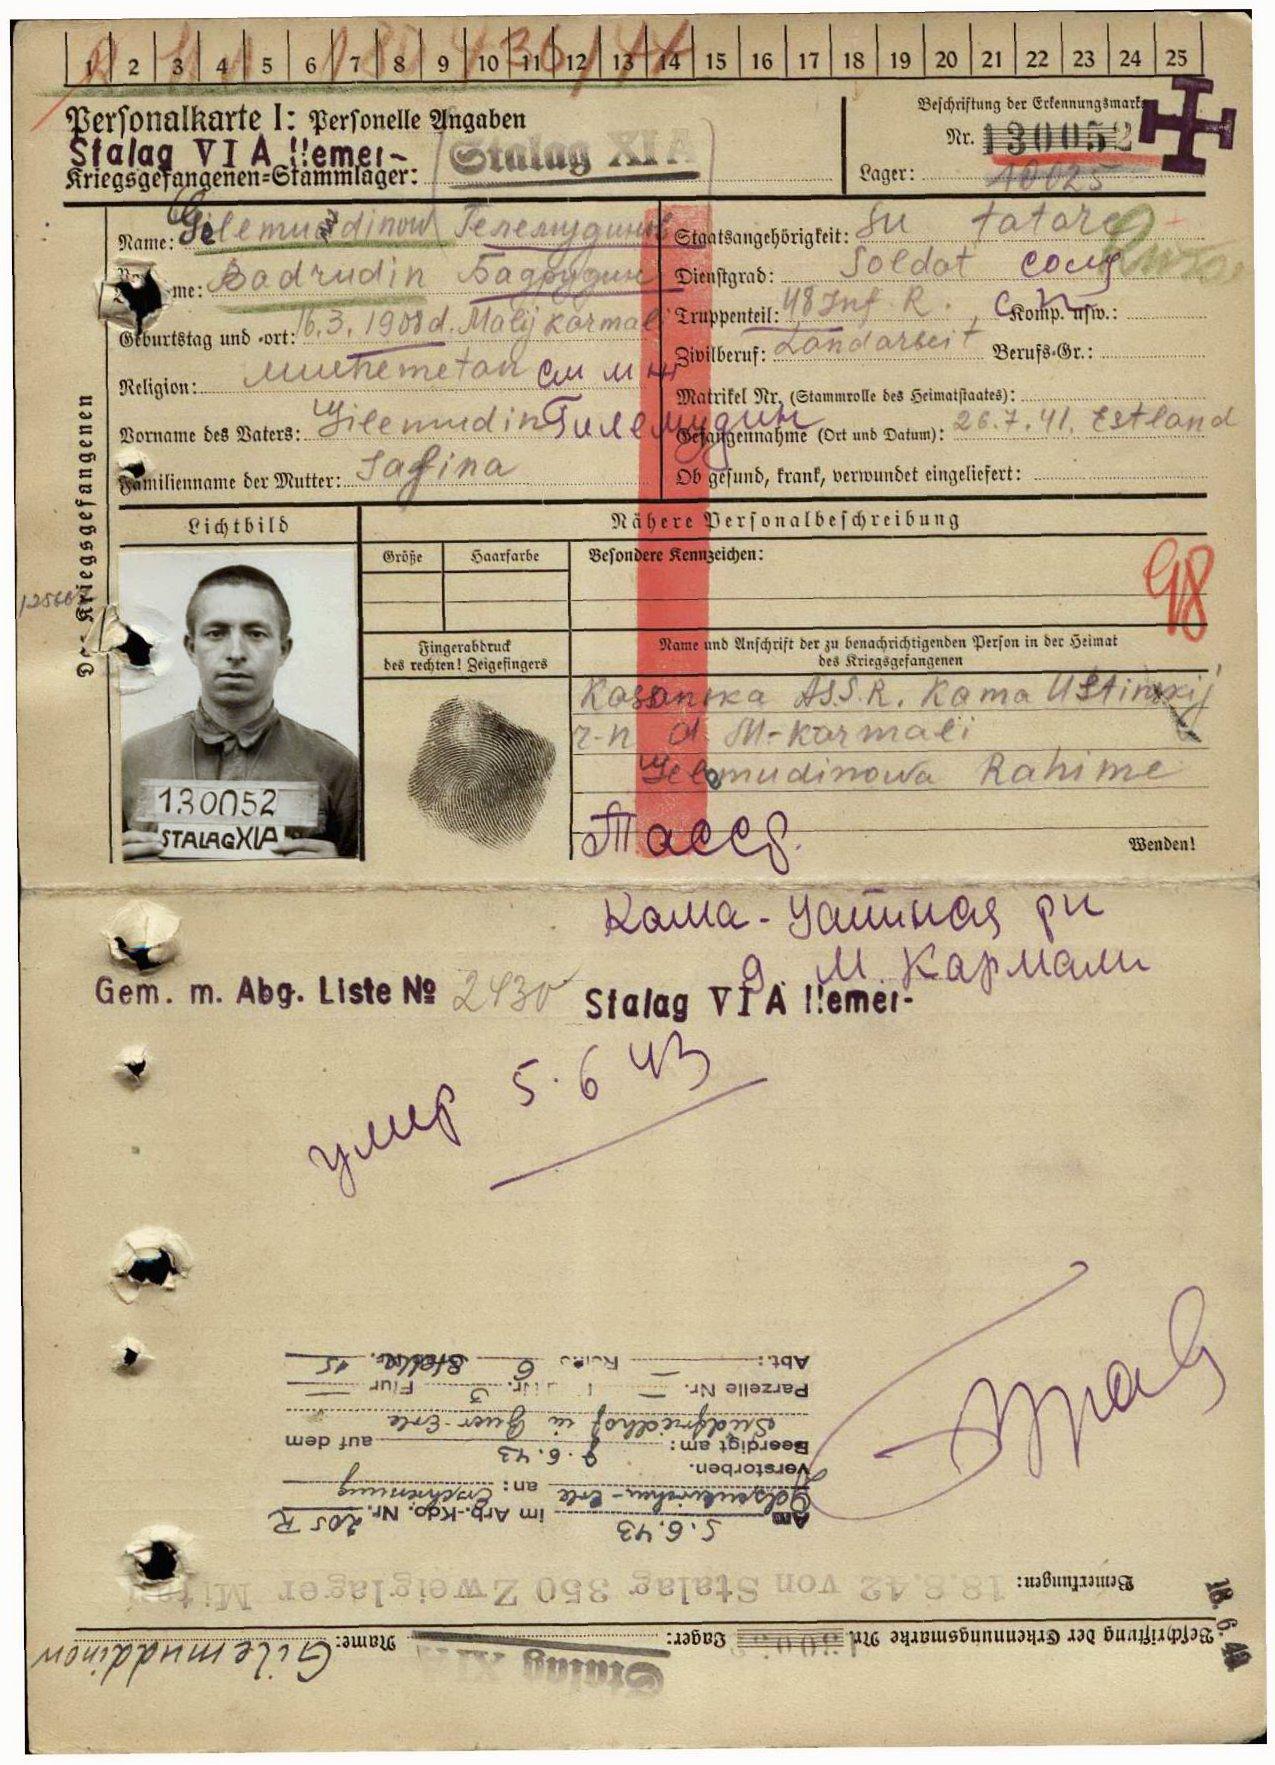 1 2 3 4 5 6 7 8 9 10 11 12 13 14 15 16 17 18 19 20 21 22 23 24 25
Personalkarte I: Personelle Angaben
Beschriftung der Erkennungsmarke
Stalag VI A Hemer-
Nr. 130052
Kriegsgefangenen-Stammlager: Stalag XI A
Lager: 10025
Des Kriegsgefangenen
Name: Gilemuddinow Гелемудинов
me: Badrudin Бадрудин
Geburtstag und -ort: 16.3.1908 d. Malij Karmali
Religion: muchemetan
Vorname des Vaters: Gilemudin Гилемудин
Familienname der Mutter: Safina
Staatsangehörigkeit: Su tatare
Dienstgrad: Soldat
Truppenteil: 48 Inf. R. Komp. usw.:
Zivilberuf: Landarbeit Berufs-Gr.:
Matrikel Nr. (Stammrolle des Heimatstaates):
Gefangennahme (Ort und Datum): 26.7.41. Estland
Ob gesund, krank, verwundet eingeliefert:
Lichtbild
Nähere Personalbeschreibung
Größe Haarfarbe Besondere Kennzeichen:
98
Fingerabdruck
des rechten! Zeigefingers
Name und Anschrift der zu benachrichtigenden Person in der Heimat
des Kriegsgefangenen
Kasanska ASS.R. Kama Ustinskij
r-n d. M-Karmali
Gelemudinowa Rahime
130052
STALAG XIA
Тасср.
Wenden!
Кама-Устиная рн
д. М. Кармали
Gem. m. Abg. Liste No 2430
Stalag VI A Hemer-
умер 5.6 43
Beschriftung der Erkennungsmarke Nr. Lager: Stalag XI A Name: Gilemuddinow
Bemerkungen: 18.8.42 von Stalag 350 Zweiglager Mitau
Am 5.6.43 im Arb.-Kdo. Nr. 205 R
Gelsenkirchen-Erle an: Erschiessung
verstorben.
Beerdigt am: 9.6.43 auf dem
Südfriedhof in Buer-Erle
Parzelle Nr. Nr. 3 Flur
Abt: Reihe 6 Stelle 15